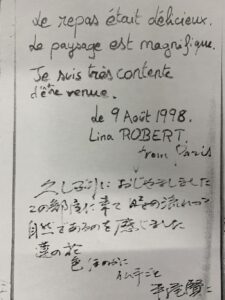 Le repas était délicieux.
Le paysage est magnifique.
Je suis très contente
d'être venue.
Le 9 Août 1998.
Lina ROBERT.
from Paris
久しぶりにおじゃましました
この部屋に来て時の流れって
自然であるのを感じました
の花
色ほのかに